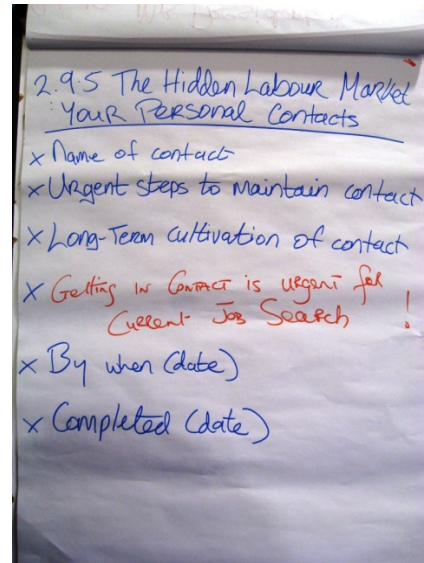 2.9.5 The Hidden Labour Market
: Your Personal Contacts
x Name of contact
x Urgent steps to maintain contact
x Long-Term cultivation of contact
x Getting in Contact is urgent for
Current Job Search !
x By when (date)
x Completed (date)